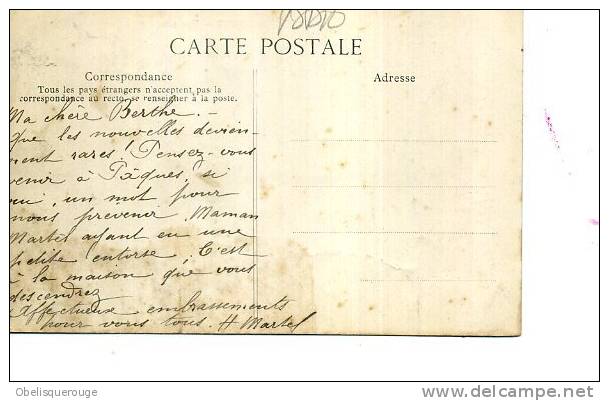 CARTE POSTALE
Correspondance
Tous les pays étrangers n'acceptent pas la
correspondance au recto, se renseigner à la poste.
Adresse
Ma chère Berthe, -
Que les nouvelles devien-
nent rares ! Pensez-vous
venir à Pâques, si
oui, un mot pour
nous prevenir, Maman
Martel ayant eu une
petite entorse, C'est
à la maison que vous
descendrez
Affectueux embrassements
pour vous tous. H Martel
Obelisquerouge
delcampe.net